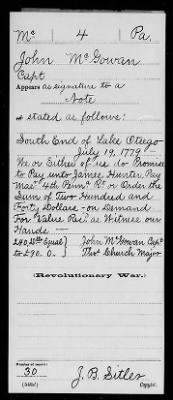 Mc 4 Pa.
John McGowan
Capt
Appears as signature to a
Note
& stated as follows:
South End of Lake Otego
July 19, 1779
We or Either of us do Promise
to Pay unto James Hunter, Pay
Mas. 4th Penna. Rt. or Order the
Sum of Two Hundred and
Forty Dollars - on Demand
For Value Recd. as Witness our
Hands
240 Equal John McGowan Capt.
to £90. 0. Thos. Church Major
(Revolutionary War.)
Number of record:
30
J. B. Sitler
Copyist.